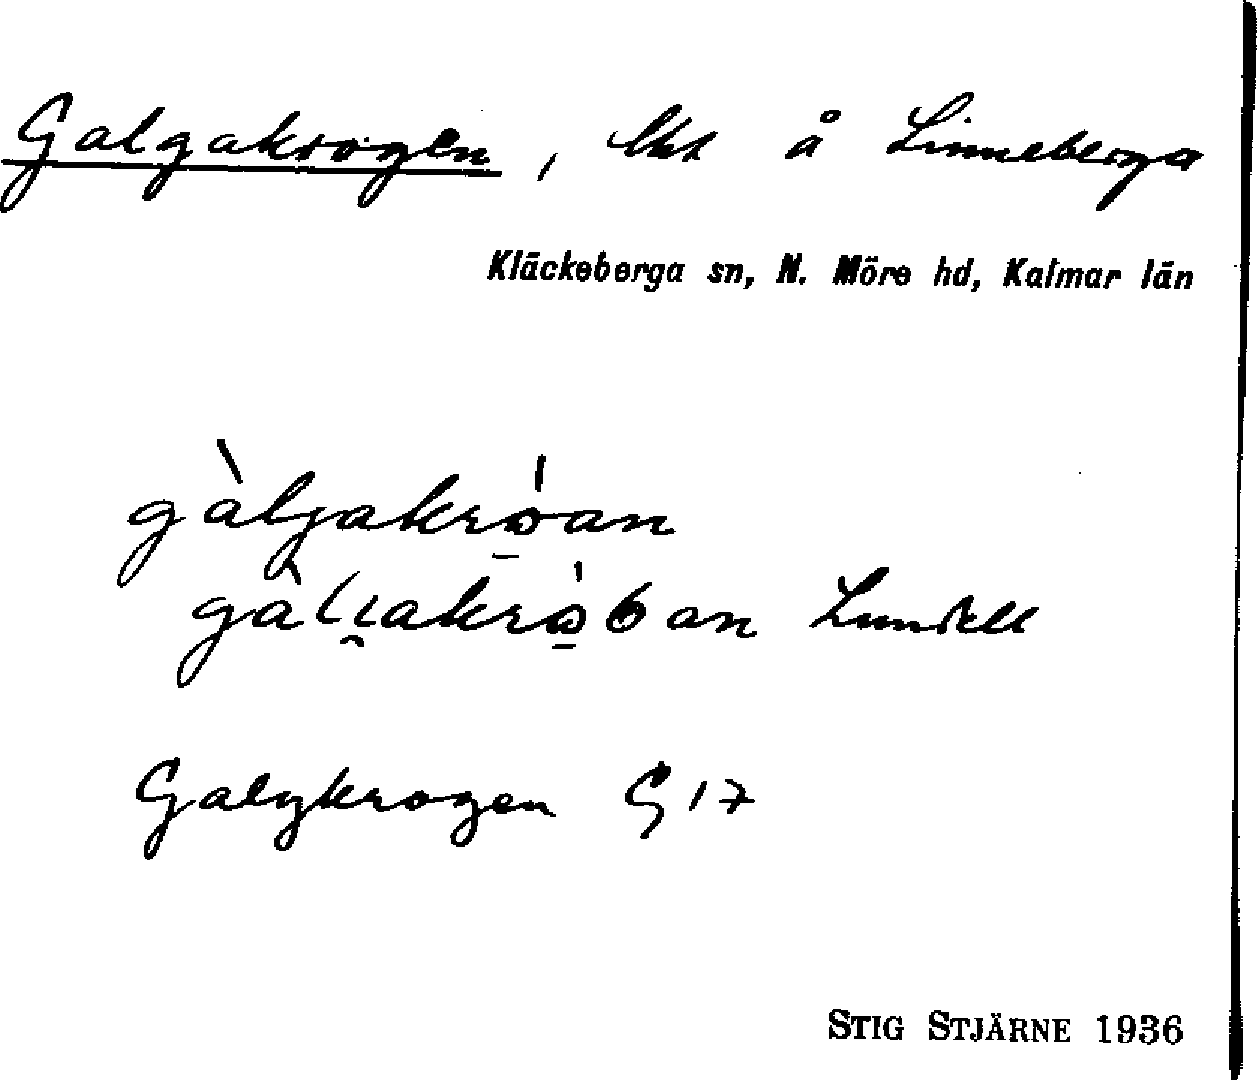 Galgakrogen, lht å Linneberga
Kläckeberga sn, N. Möre hd, Kalmar län
gàljakró̱an
Lundell
Galgkrogen G 17
STIG STJÄRNE 1936